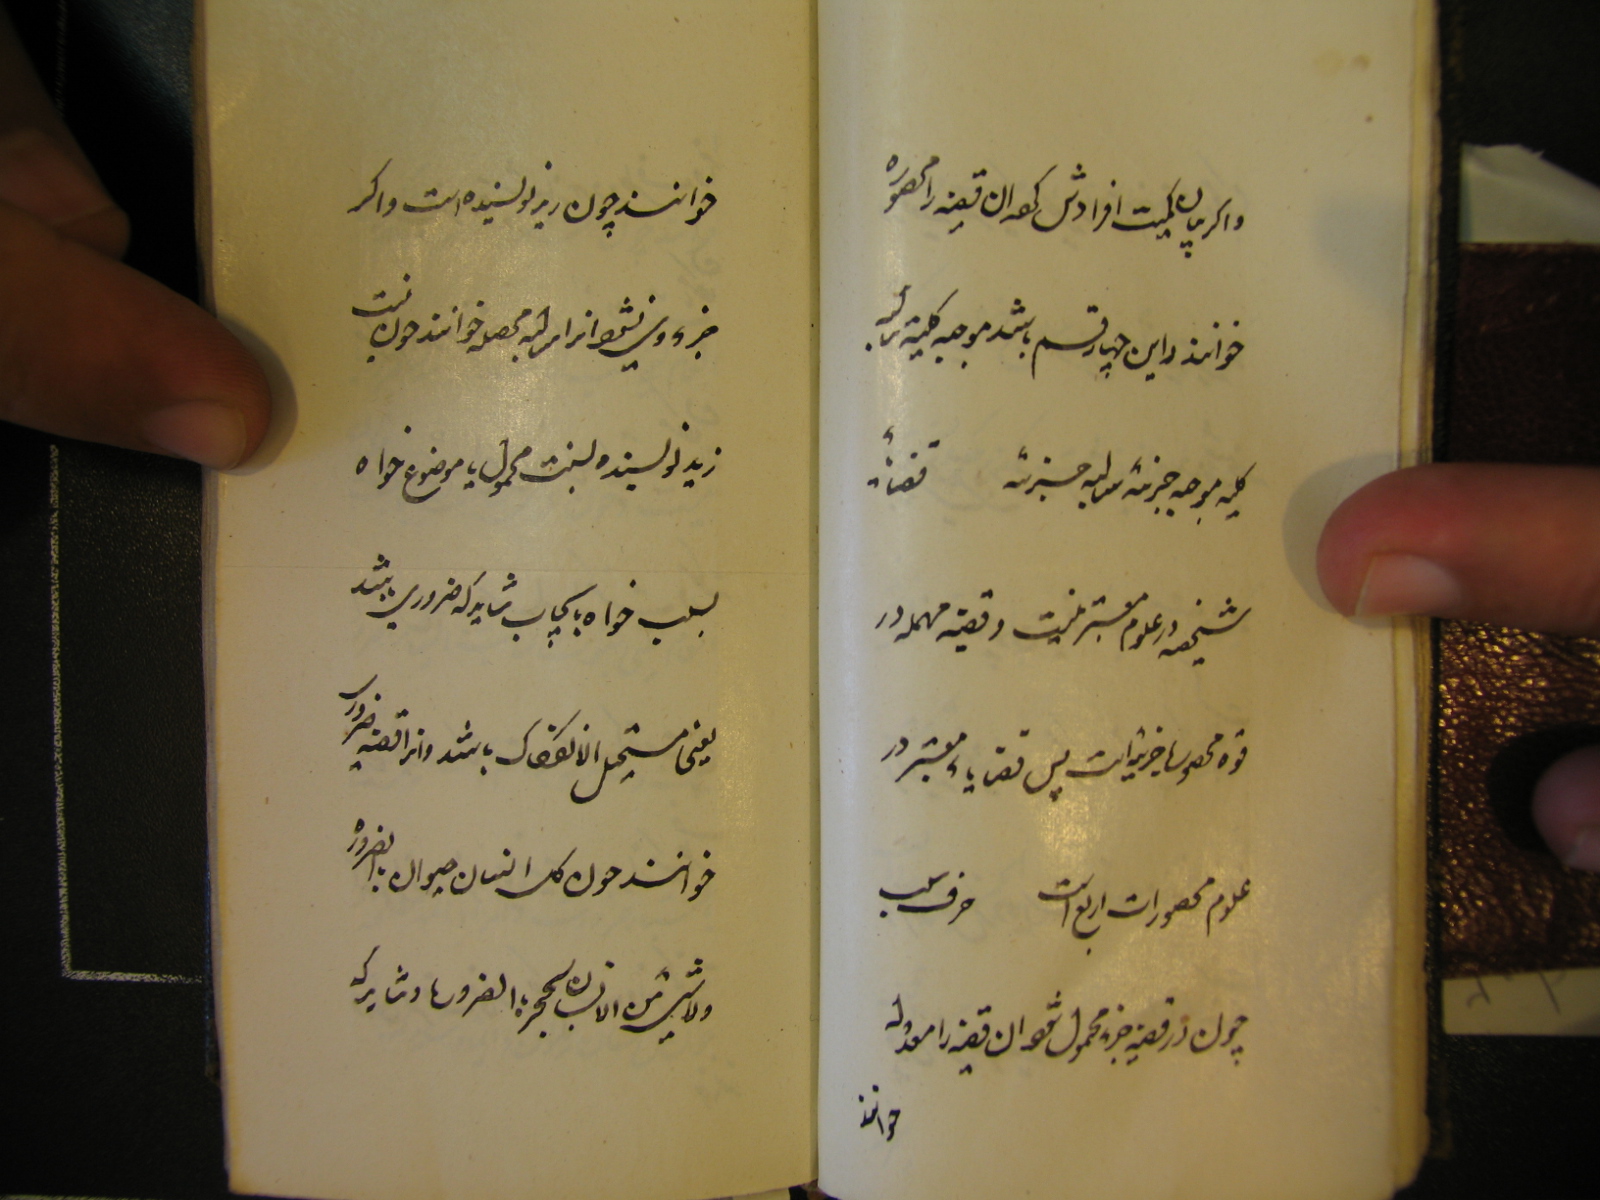 واکر بیان کمیت افرادش کند ان قضیه را محصوره
خوانند و این چهار قسم باشد موجبه کلیه سالبه
کلیه موجبه جزئیه سالبه جزئیه قضیه
شخصیه در علوم معتبر نیست و قضیه مهمله در
قوه محصوره جزئیه است پس قضایاء معتبر در
علوم محصورات اربع است حرف سلب
چون در قضیه جزء محمول شود ان قضیه را معدوله
خوانند
خوانند چون زید نانویسنده است واکر
جزء وی نشود انرا محصله خوانند چون نیست
زید نویسنده نسبت محمول با موضوع خواه
بسلب خواه بایجاب شاید که ضروری باشد
یعنی مستحیل الانفکاک باشد وانرا قضیه ضروریه
خوانند چون کل انسان حیوان بالضروره
ولاشیء من الانسان بحجر بالضروره وشاید که